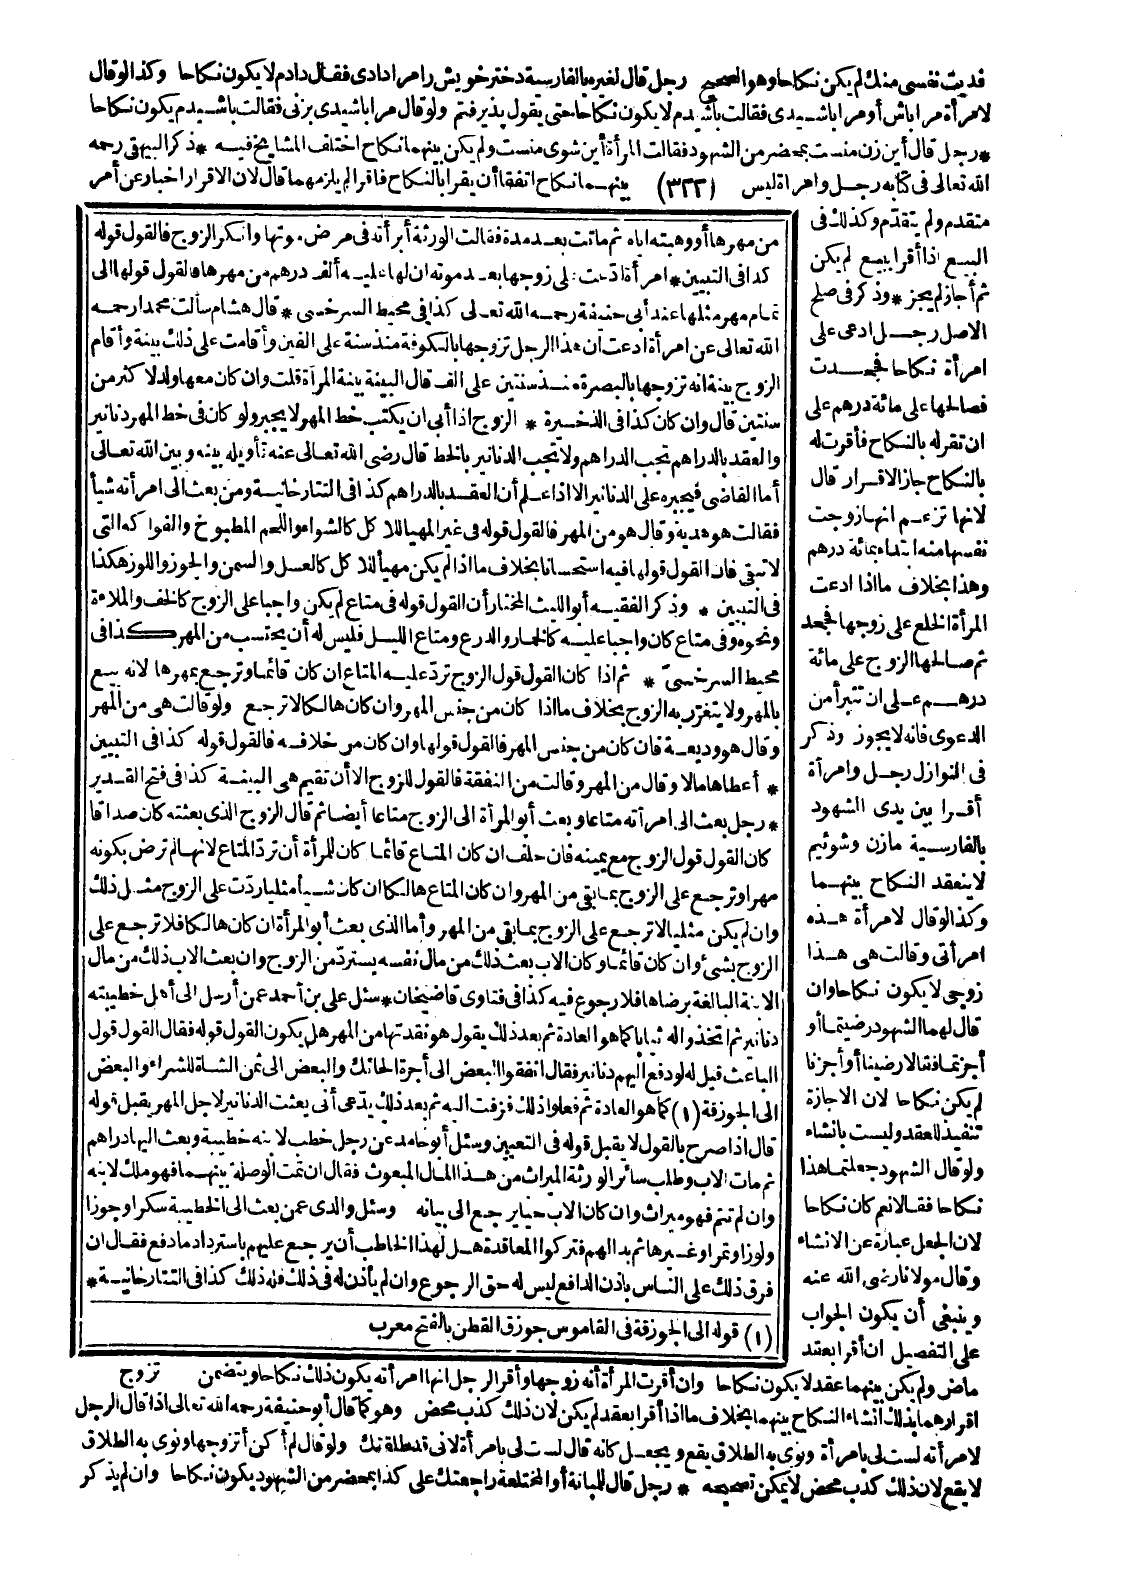 فديت نفسى منك لم يكن نكاحا وهو الصحيح رجل قال لغيره بالفارسية دختر خويش را مرا دادى فقال دادم لا يكون نكاحا وكذا لو قال
لامرأة مرا باش أو مرا باشيدى فقالت باشيدم لا يكون نكاحا حتى يقول پذيرفتم ولو قال مرا باشيدى بزنى فقالت باشيدم يكون نكاحا
* رجل قال أين زن منست بمحضر من الشهود فقالت المرأة أين شوى منست ولم يكن بينهما نكاح اختلف المشايخ فيه * ذكر البيهقى رحمه
الله تعالى فى كتابه رجل وامرأة ليس (٣٢٢) بينهما نكاح اتفقا أن يقرا بالنكاح فأقرا لم يلزمهما قال لان الاقرار اخبار عن أمر
متقدم ولم يتقدم وكذلك فى
البيع اذا أقرا ببيع لم يكن
ثم أجاز لم يجز * وذكر فى صلح
الاصل رجل ادعى على
امرأة نكاحا فجحدت
فصالحها على مائة درهم على
ان تقر له بالنكاح فأقرت له
بالنكاح جاز الاقرار قال
لانها تزعم انها زوجت
نفسها منه ابتداء بمائة درهم
وهذا بخلاف ما اذا ادعت
المرأة الخلع على زوجها فجحد
ثم صالحها الزوج على مائة
درهم على ان تبرأ من
الدعوى فانه لا يجوز وذكر
فى النوازل رجل وامرأة
أقرا بين يدى الشهود
بالفارسية مازن وشوئيم
لا ينعقد النكاح بينهما
وكذا لو قال لامرأة هذه
امرأتى وقالت هى هذا
زوجى لا يكون نكاحا وان
قال لهما الشهود رضيتما أو
أجزتما فقالا رضينا أو أجزنا
لم يكن نكاحا لان الاجازة
تنفيذ للعقد وليست بانشاء
ولو قال الشهود جعلتما هذا
نكاحا فقالا نعم كان نكاحا
لان الجعل عبارة عن الانشاء
وقال مولانا رضى الله عنه
وينبغى أن يكون الجواب
على التفصيل ان أقرا بعقد
من مهرها أو وهبته اياه ثم ماتت بعد مدة فقالت الورثة أبرأته فى مرض موتها وانكر الزوج فالقول قوله
كذا فى التبيين * امرأة ادعت على زوجها بعد موته ان لها عليه ألف درهم من مهرها فالقول قولها الى
تمام مهر مثلها عند أبى حنيفة رحمه الله تعالى كذا فى محيط السرخسى * قال هشام سألت محمدا رحمه
الله تعالى عن امرأة ادعت ان هذا الرجل تزوجها بالكوفة منذ سنة على الفين وأقامت على ذلك بينة وأقام
الزوج بينة انه تزوجها بالبصرة منذ سنتين على الف قال البينة بينة المرأة قلت وان كان معها ولد لاكثر من
سنتين قال وان كان كذا فى الذخيرة * الزوج اذا أبى ان يكتب خط المهر لا يجبر ولو كان فى خط المهر دنانير
والعقد بالدراهم تجب الدراهم ولا تجب الدنانير بالخط قال رضى الله تعالى عنه تأويله بينه وبين الله تعالى
أما القاضى فيجبره على الدنانير الا اذا علم أن العقد بالدراهم كذا فى التتارخانية ومن بعث الى امرأته شيأ
فقالت هو هدية وقال هو من المهر فالقول قوله فى غير المهيا للاكل كالشواء واللحم المطبوخ والفواكه التى
لا تبقى فان القول قولها فيه استحسانا بخلاف ما اذا لم يكن مهيأ للاكل كالعسل والسمن والجوز واللوز هكذا
فى التبيين * وذكر الفقيه أبو الليث المختار أن القول قوله فى متاع لم يكن واجبا على الزوج كالخف والملاءة
ونحوه وفى متاع كان واجبا عليه كالخمار والدرع ومتاع الليل فليس له أن يحتسب من المهر كذا فى
محيط السرخسى * ثم اذا كان القول قول الزوج تردّ عليه المتاع ان كان قائما وترجع بمهرها لانه بيع
بالمهر ولا يتفرّد به الزوج بخلاف ما اذا كان من جنس المهر وان كان هالكا لا ترجع ولو قالت هى من المهر
وقال هو وديعة فان كان من جنس المهر فالقول قولها وان كان من خلافه فالقول قوله كذا فى التبيين
* أعطاها مالا وقال من المهر وقالت من النفقة فالقول للزوج الا أن تقيم هى البينة كذا فى فتح القدير
* رجل بعث الى امرأته متاعا وبعث أبو المرأة الى الزوج متاعا أيضا ثم قال الزوج الذى بعثته كان صداقا
كان القول قول الزوج مع يمينه فان حلف ان كان المتاع قائما كان للمرأة أن تردّ المتاع لانها لم ترض بكونه
مهرا وترجع على الزوج بما بقى من المهر وان كان المتاع هالكا ان كان شيأ مثليا ردّت على الزوج مثل ذلك
وان لم يكن مثليا لا ترجع على الزوج بما بقى من المهر وأما الذى بعث أبو المرأة ان كان هالكا فلا ترجع على
الزوج بشئ وان كان قائما وكان الاب بعث ذلك من مال نفسه يستردّ من الزوج وان بعث الاب ذلك من مال
الابنة البالغة برضاها فلا رجوع فيه كذا فى فتاوى قاضيخان * سئل على بن أحمد عمن أرسل الى أهل خطيبته
دنانير ثم اتخذوا له ثيابا كما هو العادة ثم بعد ذلك يقول هو نقدتها من المهر هل يكون القول قوله فقال القول قول
الباعث قيل له لو دفع اليهم دنانير فقال انفقوا البعض الى أجرة الحائك والبعض الى ثمن الشاة للشراء والبعض
الى الجوزقة (١) كما هو العادة ثم فعلوا ذلك فزفت اليه ثم بعد ذلك يدّعى أنى بعثت الدنانير لاجل المهر يقبل قوله
قال اذا صرح بالقول لا يقبل قوله فى التعيين وسئل أبو حامد عن رجل خطب لابنه خطيبة وبعث اليها دراهم
ثم مات الاب وطلب سائر الورثة الميراث من هذا المال المبعوث فقال ان تمت الوصلة بينهما فهو ملك لابنه
وان لم تتم فهو ميراث وان كان الاب حيا يرجع الى بيانه وسئل والدى عمن بعث الى الخطيبة سكرا وجوزا
ولوزا وتمرا وغيرها ثم بدا لهم فتركوا المعاقدة هل لهذا الخاطب أن يرجع عليهم باسترداد ما دفع فقال ان
فرق ذلك على الناس باذن الدافع ليس له حق الرجوع وان لم يأذن له فى ذلك فله ذلك كذا فى التتارخانية *
(١) قوله الى الجوزقة فى القاموس جوزق القطن بالفتح معرب
ماض ولم يكن بينهما عقد لا يكون نكاحا وان أقرت المرأة أنه زوجها وأقر الرجل انها امرأته يكون ذلك نكاحا ويتضمن تزوج
اقرارهما بذلك انشاء النكاح بينهما بخلاف ما اذا أقرا بعقد لم يكن لان ذلك كذب محض وهو كما قال أبو حنيفة رحمه الله تعالى اذا قال الرجل
لامرأته لست لى بامرأة ونوى به الطلاق يقع ويجعل كانه قال لست لى بامرأة لانى قد طلقتك ولو قال لم أكن أتزوجها ونوى به الطلاق
لا يقع لان ذلك كذب محض لا يمكن تصحيحه * رجل قال للمبانة أو المختلعة راجعتك على كذا بمحضر من الشهود يكون نكاحا وان لم يذكر